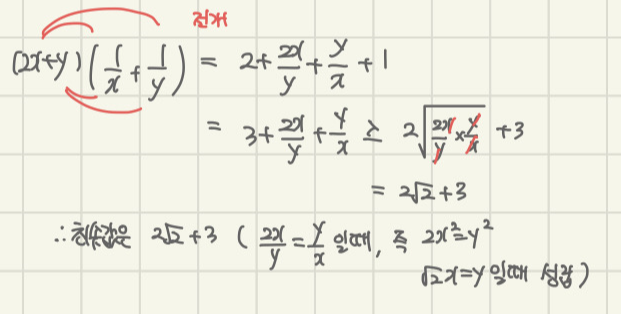 전개
(2x+y)(1/x + 1/y) = 2+2x/y+y/x+1
= 3+2x/y+y/x ≥ 2√(2x/y × y/x) +3
= 2√2+3
∴ 최솟값은 2√2+3 ( 2x/y = y/x 일 때, 즉 2x²=y²
√2x=y 일 때 성립 )